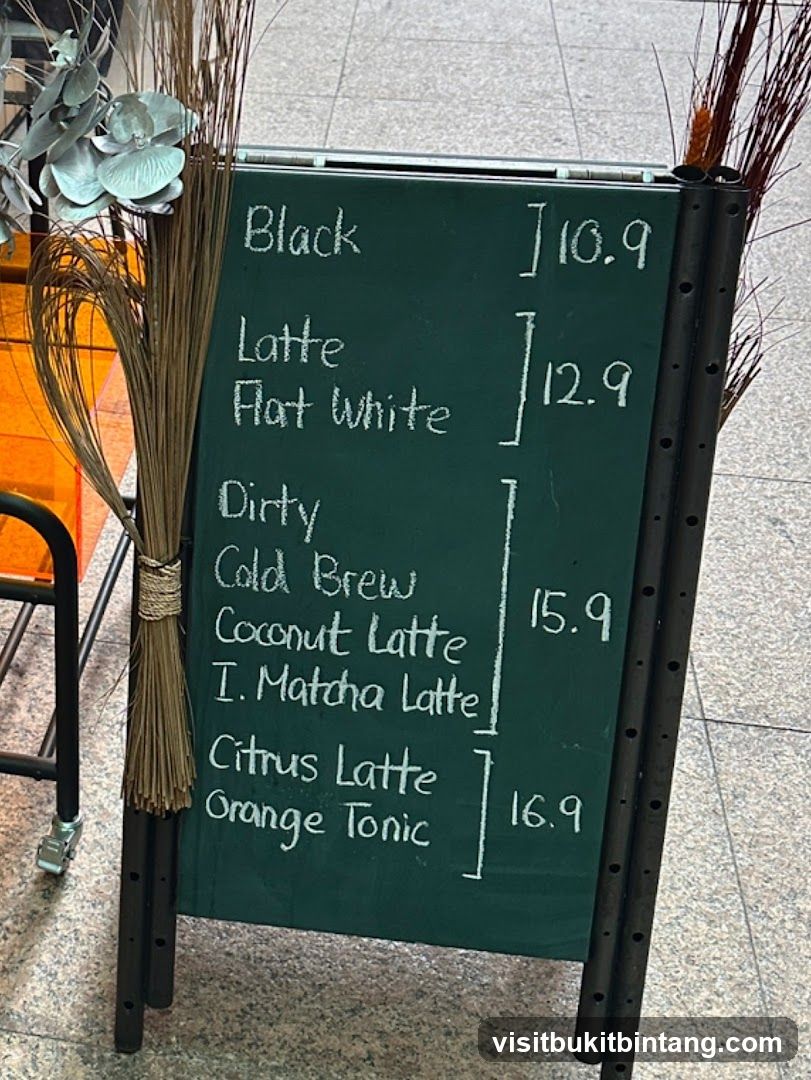 Black ] 10.9
Latte
Flat White ] 12.9
Dirty
Cold Brew
Coconut Latte ] 15.9
I. Matcha Latte
Citrus Latte
Orange Tonic ] 16.9
visitbukitbintang.com